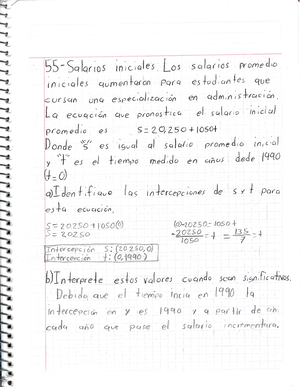 55-Salarios iniciales. Los salarios promedio
iniciales aumentaron para estudiantes que
cursan una especialización en administración.
La ecuación que pronostica el salario inicial
promedio es S=20,250+1050t
Donde "S" es igual al salario promedio inicial
y "t" es el tiempo medido en años dede 1990
(t=0)
a)Identifique las intercepciones de s y t para
esta ecuación.
S=20250+1050(0)
S=20250
(0)-20250=1050t
-20250/1050=t = 135/7 = t
Intercepción S:(20250,0)
Intercepción t:(0,1990)
b)Interprete estos valores cuando sean significativos.
Debido que el tiempo inicia en 1990 la
intercepción en y es 1990 y a partir de
cada año que pase el salario incrementara.